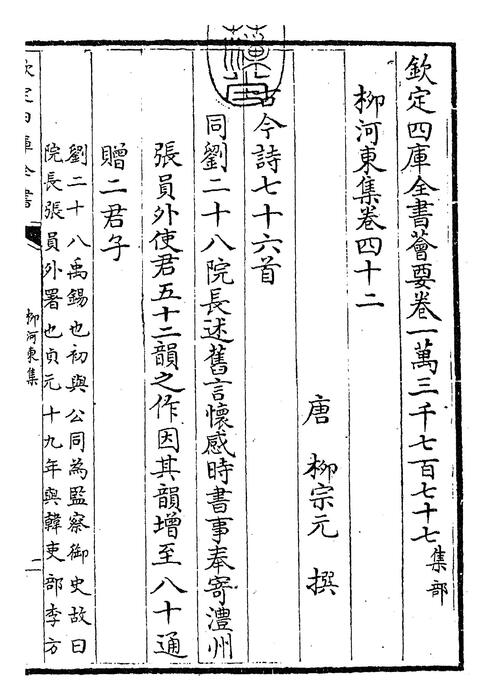 欽定四庫全書薈要卷一萬三千七百七十七集部
柳河東集卷四十二
唐 柳宗元 撰
古今詩七十六首
同劉二十八院長述舊言懷感時書事奉寄澧州
張員外使君五十二韻之作因其韻增至八十通
贈二君子
劉二十八禹錫也初與公同為監察御史故曰
院長張員外署也貞元十九年與韓吏部李方
欽定四庫全書
柳河東集